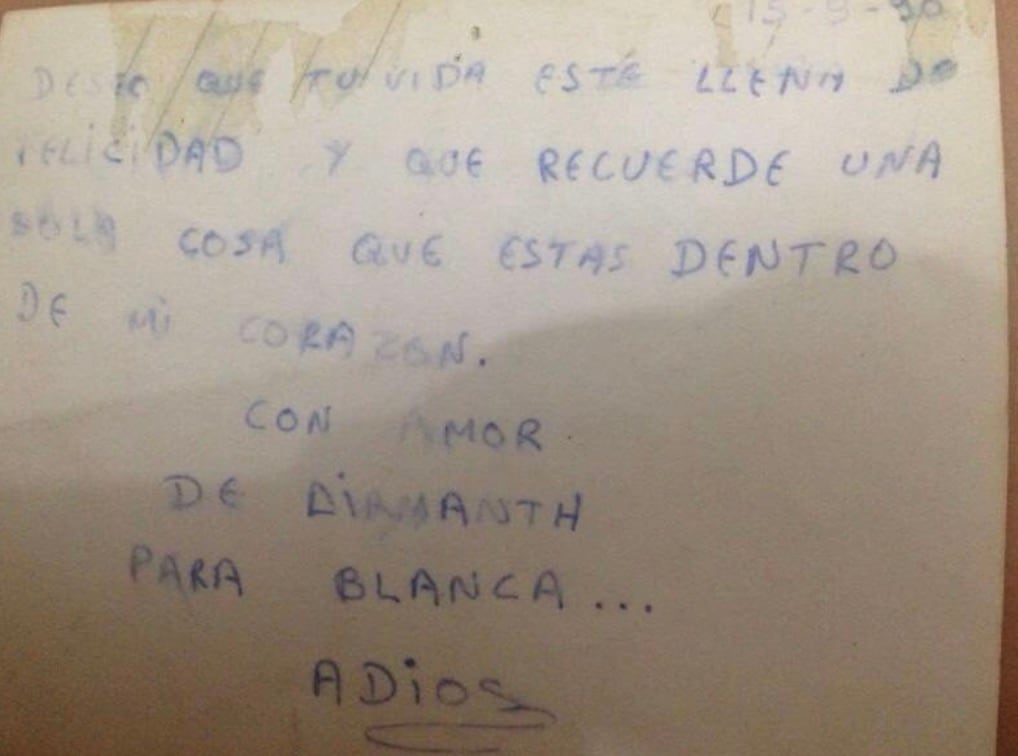 15-9-90
DESEO QUE TU VIDA ESTÉ LLENA DE
FELICIDAD Y QUE RECUERDE UNA
SOLA COSA QUE ESTAS DENTRO
DE Mi CORAZON.
CON AMOR
DE
PARA BLANCA...
ADiOS